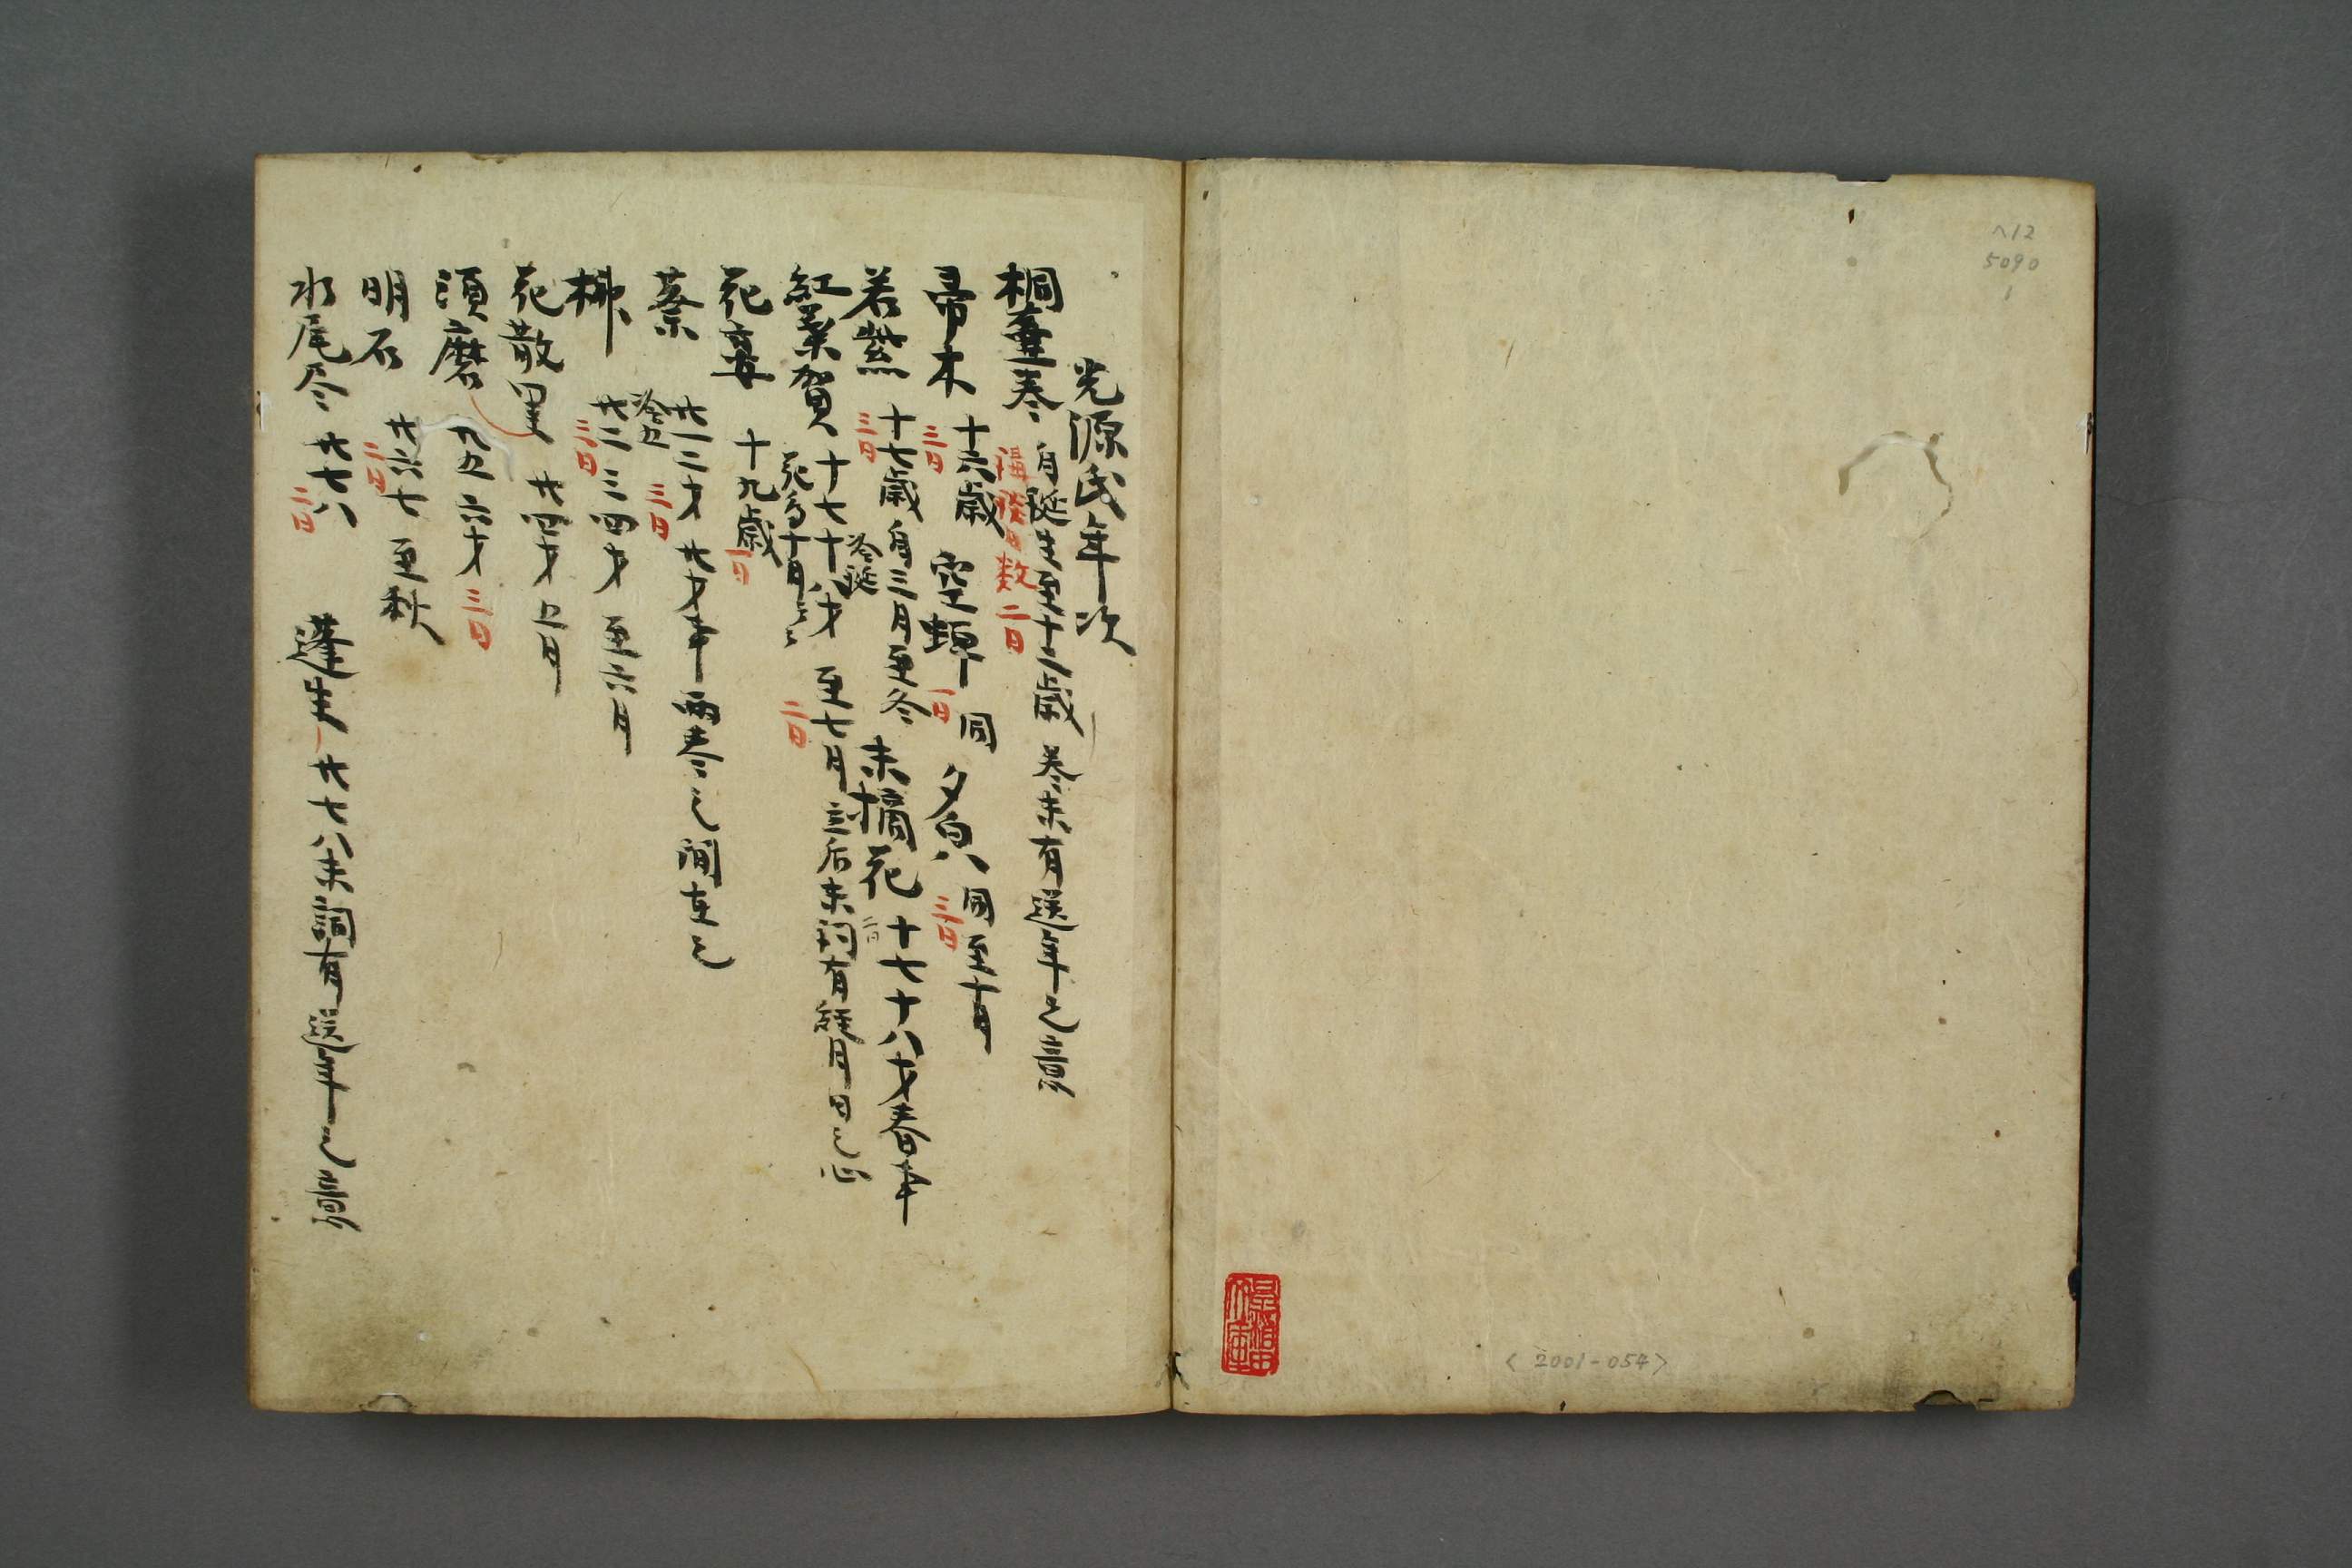 ヘ12
5090
1
<2001-054>
光源氏年次
桐壷巻 自誕生至十二歳 巻末有送年之意
講談日数 二日
帚木 十六歳 空蝉 同 夕皃 同至十月
三日 一日 三日
若紫 十七歳 自三月至冬 末摘花 十七十八才春事
三日 二日
紅葉賀 十七十八才 至七月 立后末詞有経月日之心
冷誕 二日
花宴 十九歳
一日
葵 廿一二才 廿才事両巻之間在之
三日
榊 廿二三四才 至六月
三日
花散里 廿四才 五月
須磨 廿五六才 三日
明石 廿六七 至秋
二日
水尾尽 廿七八 蓬生 廿七八末詞有送年之意
二日